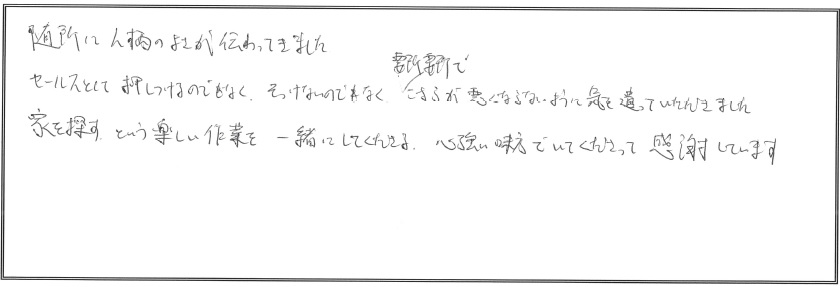 随所に人柄の良さが伝わってきました
要所要所で
セールスとして押しつけるのでもなく、そっけないのでもなく、こちらが悪くならないように気を遣っていただきました
家を探す、という楽しい作業を一緒にしてくださる、心強い味方でいてくださって感謝しています